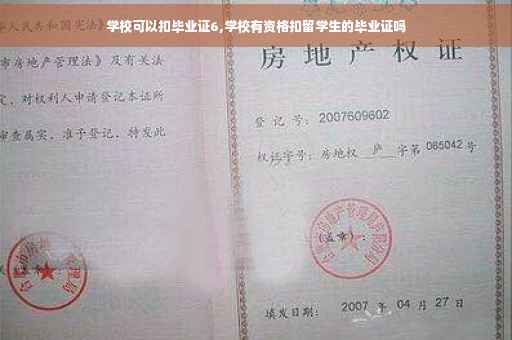 学校可以扣毕业证6,学校有资格扣留学生的毕业证吗
人民共和国宪法》
市房地产管理法》及有关法
定，对权利人申请登记本证所
审查属实，准予登记，特发此
房地产权证
登记号：2007609602
权证字号：房地权 庐 字第 085042 号
(盖章)：
填发日期： 2007 年 04 月 27 日